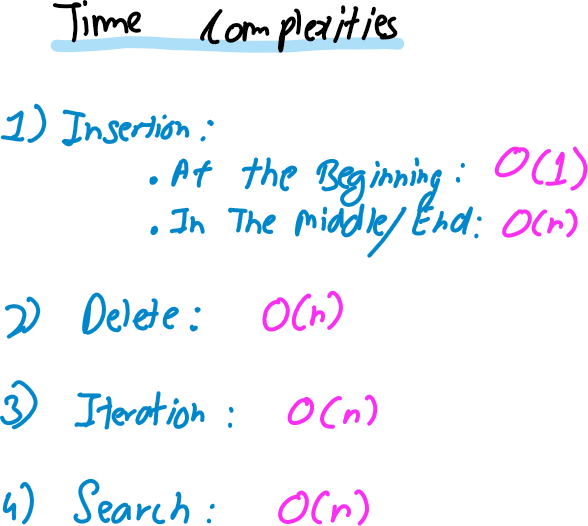 Time Complexities
1) Insertion:
. At the Beginning: O(1)
. In The Middle/End: O(n)
2) Delete: O(n)
3) Iteration: O(n)
4) Search: O(n)